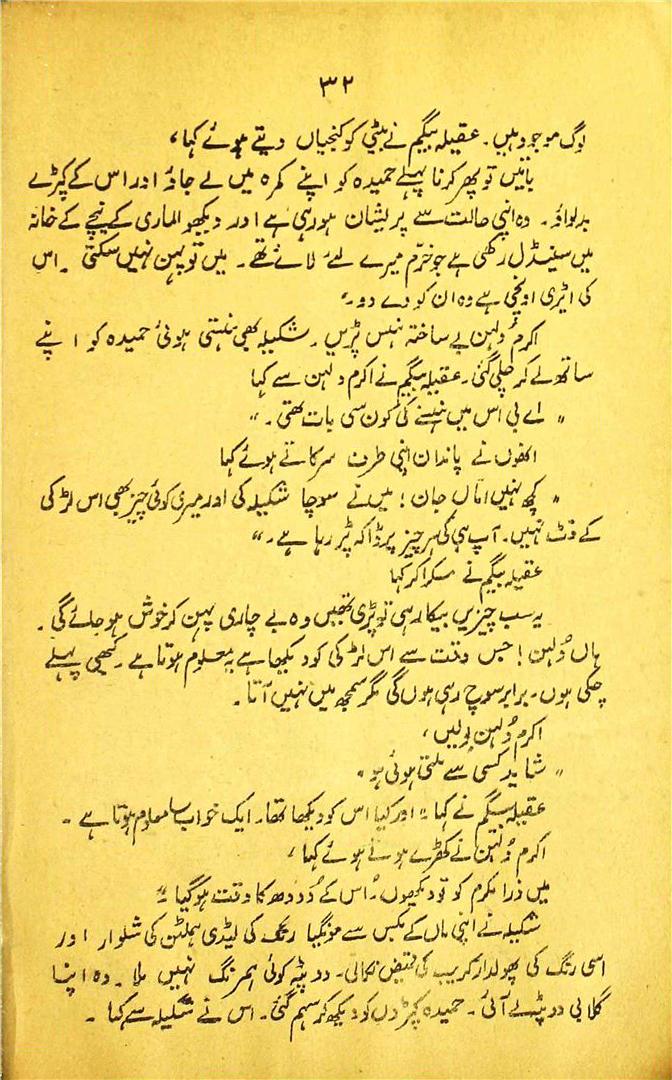 ۳۲
لوگ موجود ہیں۔ عقیلہ بیگم نے بیٹی کو کنجیاں دیتے ہوئے کہا،
باتیں تو پھر کرنا پہلے حمیدہ کو اپنے کمرہ میں لے جاؤ اور اس کے کپڑے
بدلواؤ۔ وہ اپنی حالت سے پریشان ہو رہی ہے اور دیکھو الماری کے نیچے کے خانہ
میں سینڈل رکھی ہے جو خرّم میرے لئے لائے تھے۔ میں تو پہن نہیں سکتی۔ اس
کی ایڑی اونچی ہے وہ ان کو دے دو۔"
اکرم دُلہن بے ساختہ ہنس پڑیں۔ شکیلہ بھی ہنستی ہوئی حمیدہ کو اپنے
ساتھ لے کر چلی گئی۔ عقیلہ بیگم نے اکرم دلہن سے کہا
"اے بی اس میں ہنسنے کی کون سی بات تھی۔"
انھوں نے پاندان اپنی طرف سرکاتے ہوئے کہا
"کچھ نہیں اماں جان! میں نے سوچا شکیلہ کی اور میری کوئی چیز بھی اس لڑکی
کے فٹ نہیں۔ آپ ہی کی ہر چیز پر ڈاکہ پڑ رہا ہے۔"
عقیلہ بیگم نے مسکرا کر کہا
یہ سب چیزیں بیکار ہی تو پڑی تھیں وہ بے چاری پہن کر خوش ہو جائے گی۔
ہاں دُلہن! جس وقت سے اس لڑکی کو دیکھا ہے یہ معلوم ہوتا ہے۔ کہیں پہلے
چکی ہوں۔ برابر سوچ رہی ہوں گی مگر سمجھ میں نہیں آتا۔
اکرم دُلہن بولیں،
"شاید کسی سے ملتی ہوئی ہو"
عقیلہ بیگم نے کہا "اور کیا اس کو دیکھا تھا۔ ایک خواب سا معلوم ہوتا ہے۔
اکرم دُلہن نے کھڑے ہوتے ہوئے کہا،
میں ذرا مکرم کو تو دیکھوں۔ اُس کے دُودھ کا وقت ہو گیا"
شکیلہ نے اپنی ماں کے بکس سے مونگیا رنگ کی لیڈی ہملٹن کی شلوار اور
اسی رنگ کی پھولدار کریب کی قمیض نکالی۔ دوپٹہ کوئی ہمرنگ نہیں ملا۔ وہ اپنا
گلابی دوپٹہ لے آئی۔ حمیدہ کپڑوں کو دیکھ کر سہم گئی۔ اس نے شکیلہ سے کہا۔